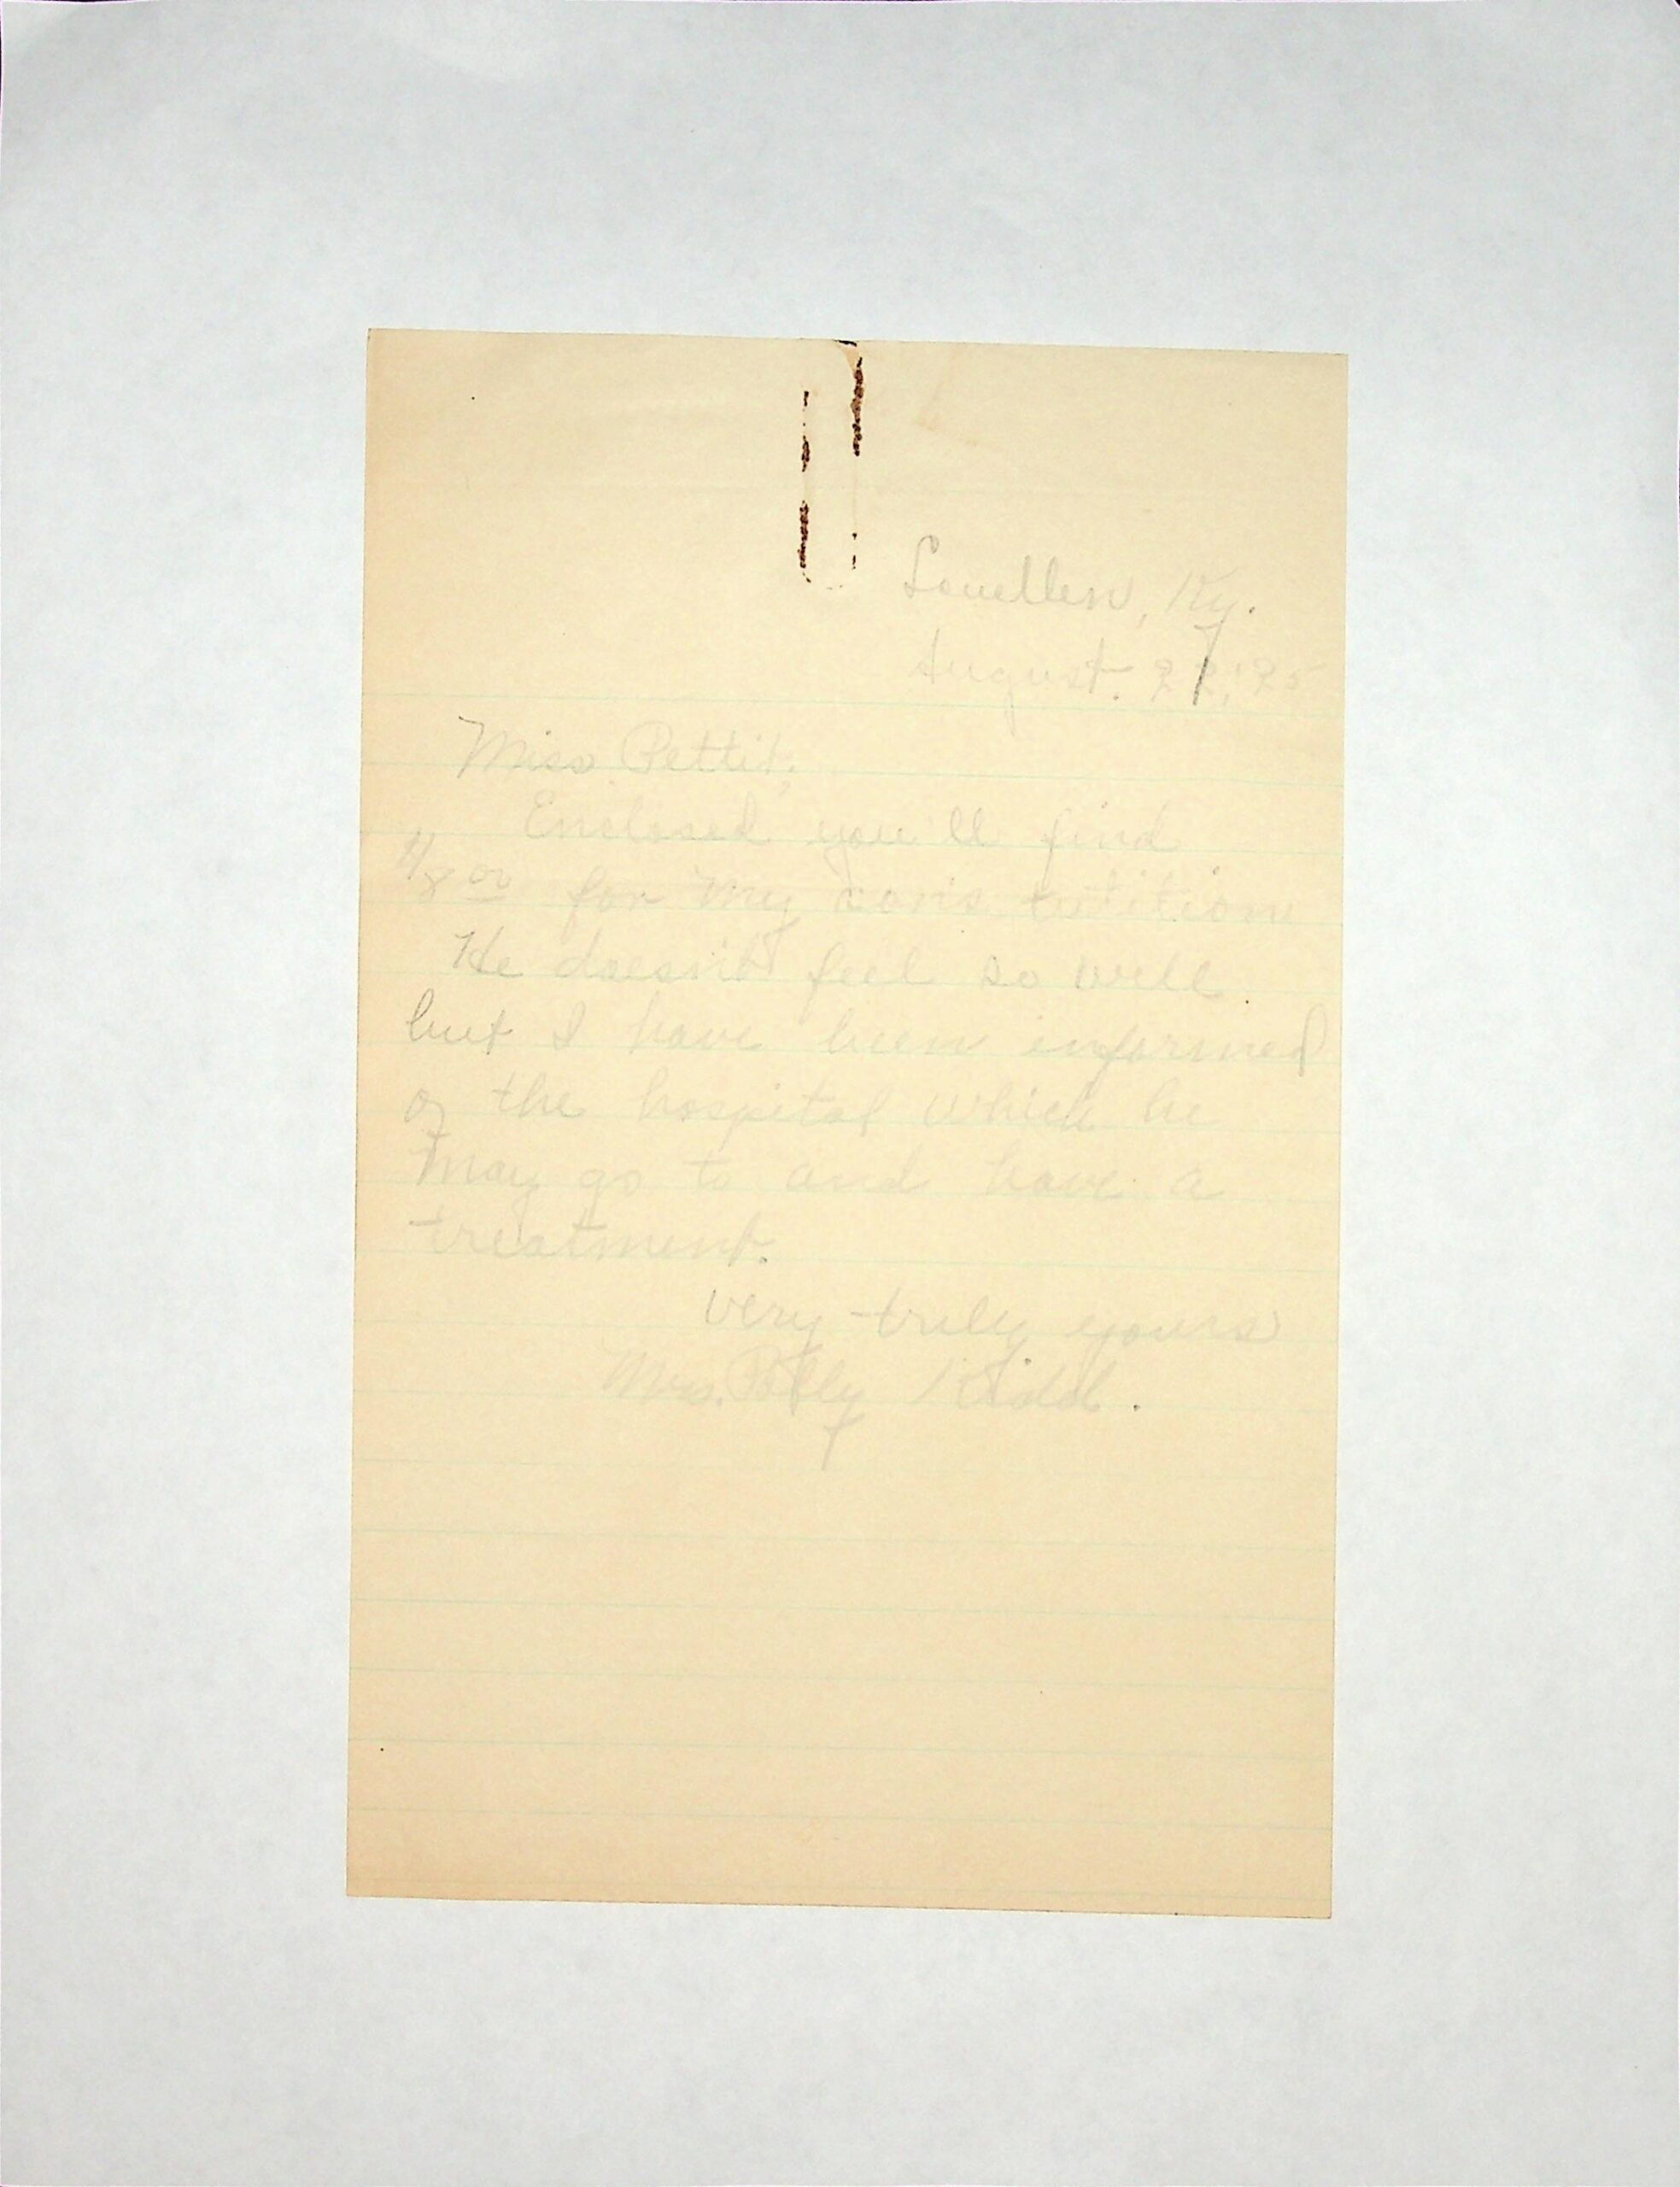 Louellen, Ky.
August. 22, '25
Miss Pettit;
Enclosed you'll find
$8 00 for my son's tutition
He doesn't feel so well
but I have been informed
of the hospital which he
may go to and have a
treatment.
Very truly yours
Mrs. Polly Kidd.